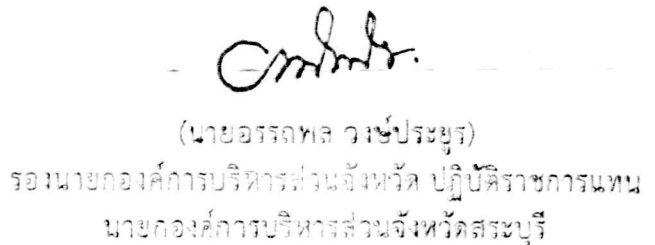 (นายอรรถพล วงษ์ประยูร)
รองนายกองค์การบริหารส่วนจังหวัด ปฏิบัติราชการแทน
นายกองค์การบริหารส่วนจังหวัดสระบุรี